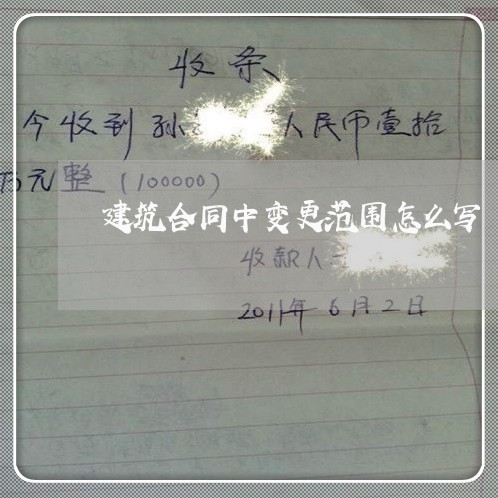 收条
今收到孙 人民币壹拾
万元整（100000）
建筑合同中变更范围怎么写
收款人
2011年6月2日